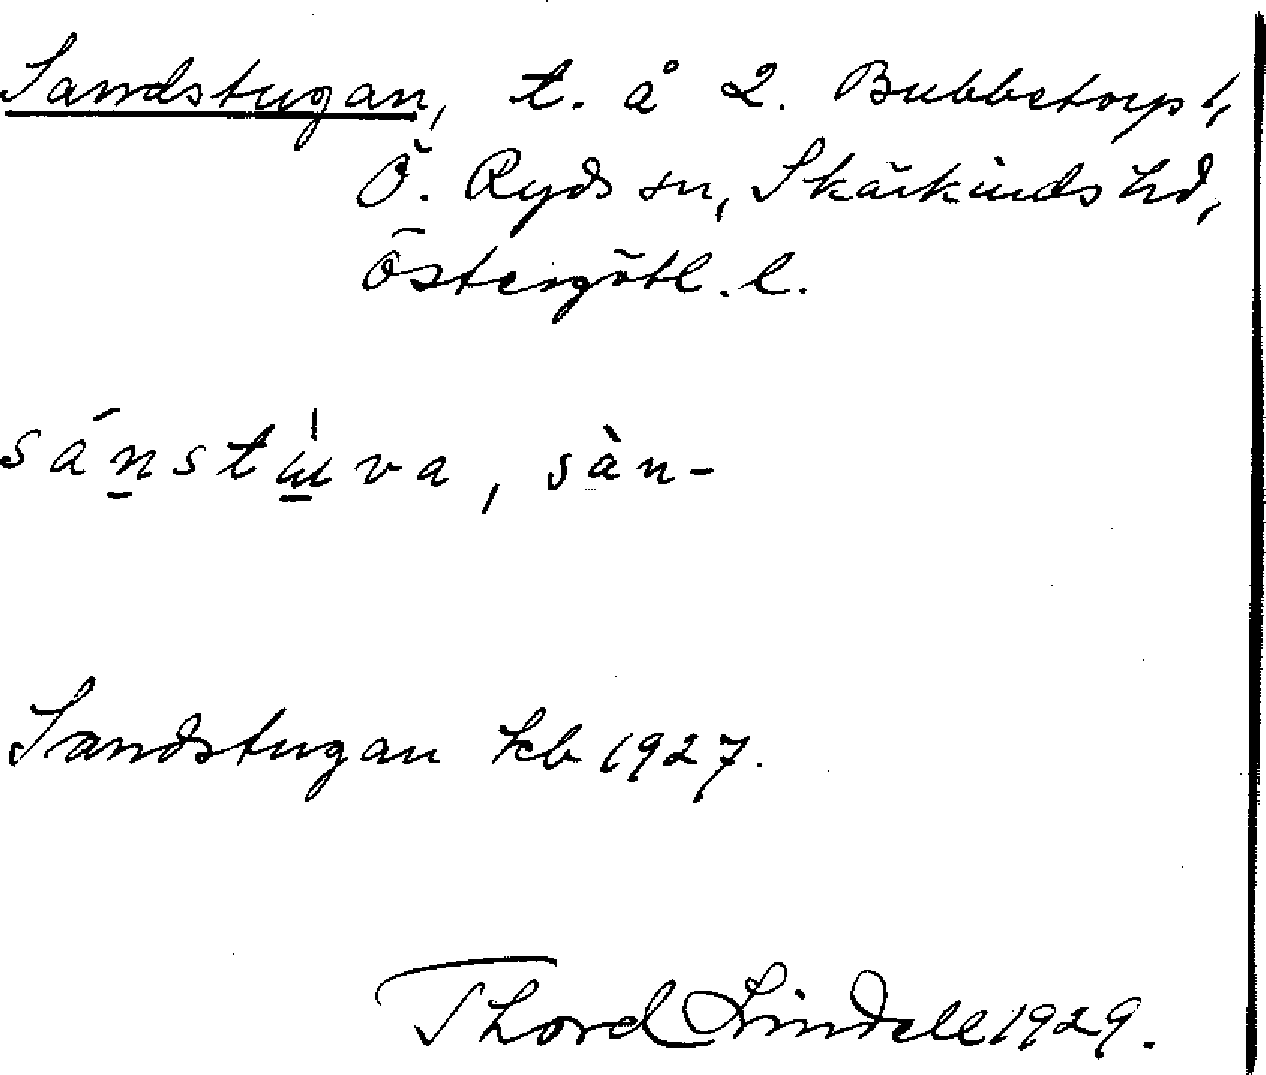 Sandstugan, t. å 2. Bubbetorp 1,
Ö. Ryds sn, Skärkinds hd,
Östergötl. l.
sánstɯ̀va, sàn-
Sandstugan kb 1927.
Thord Lindell 1929.